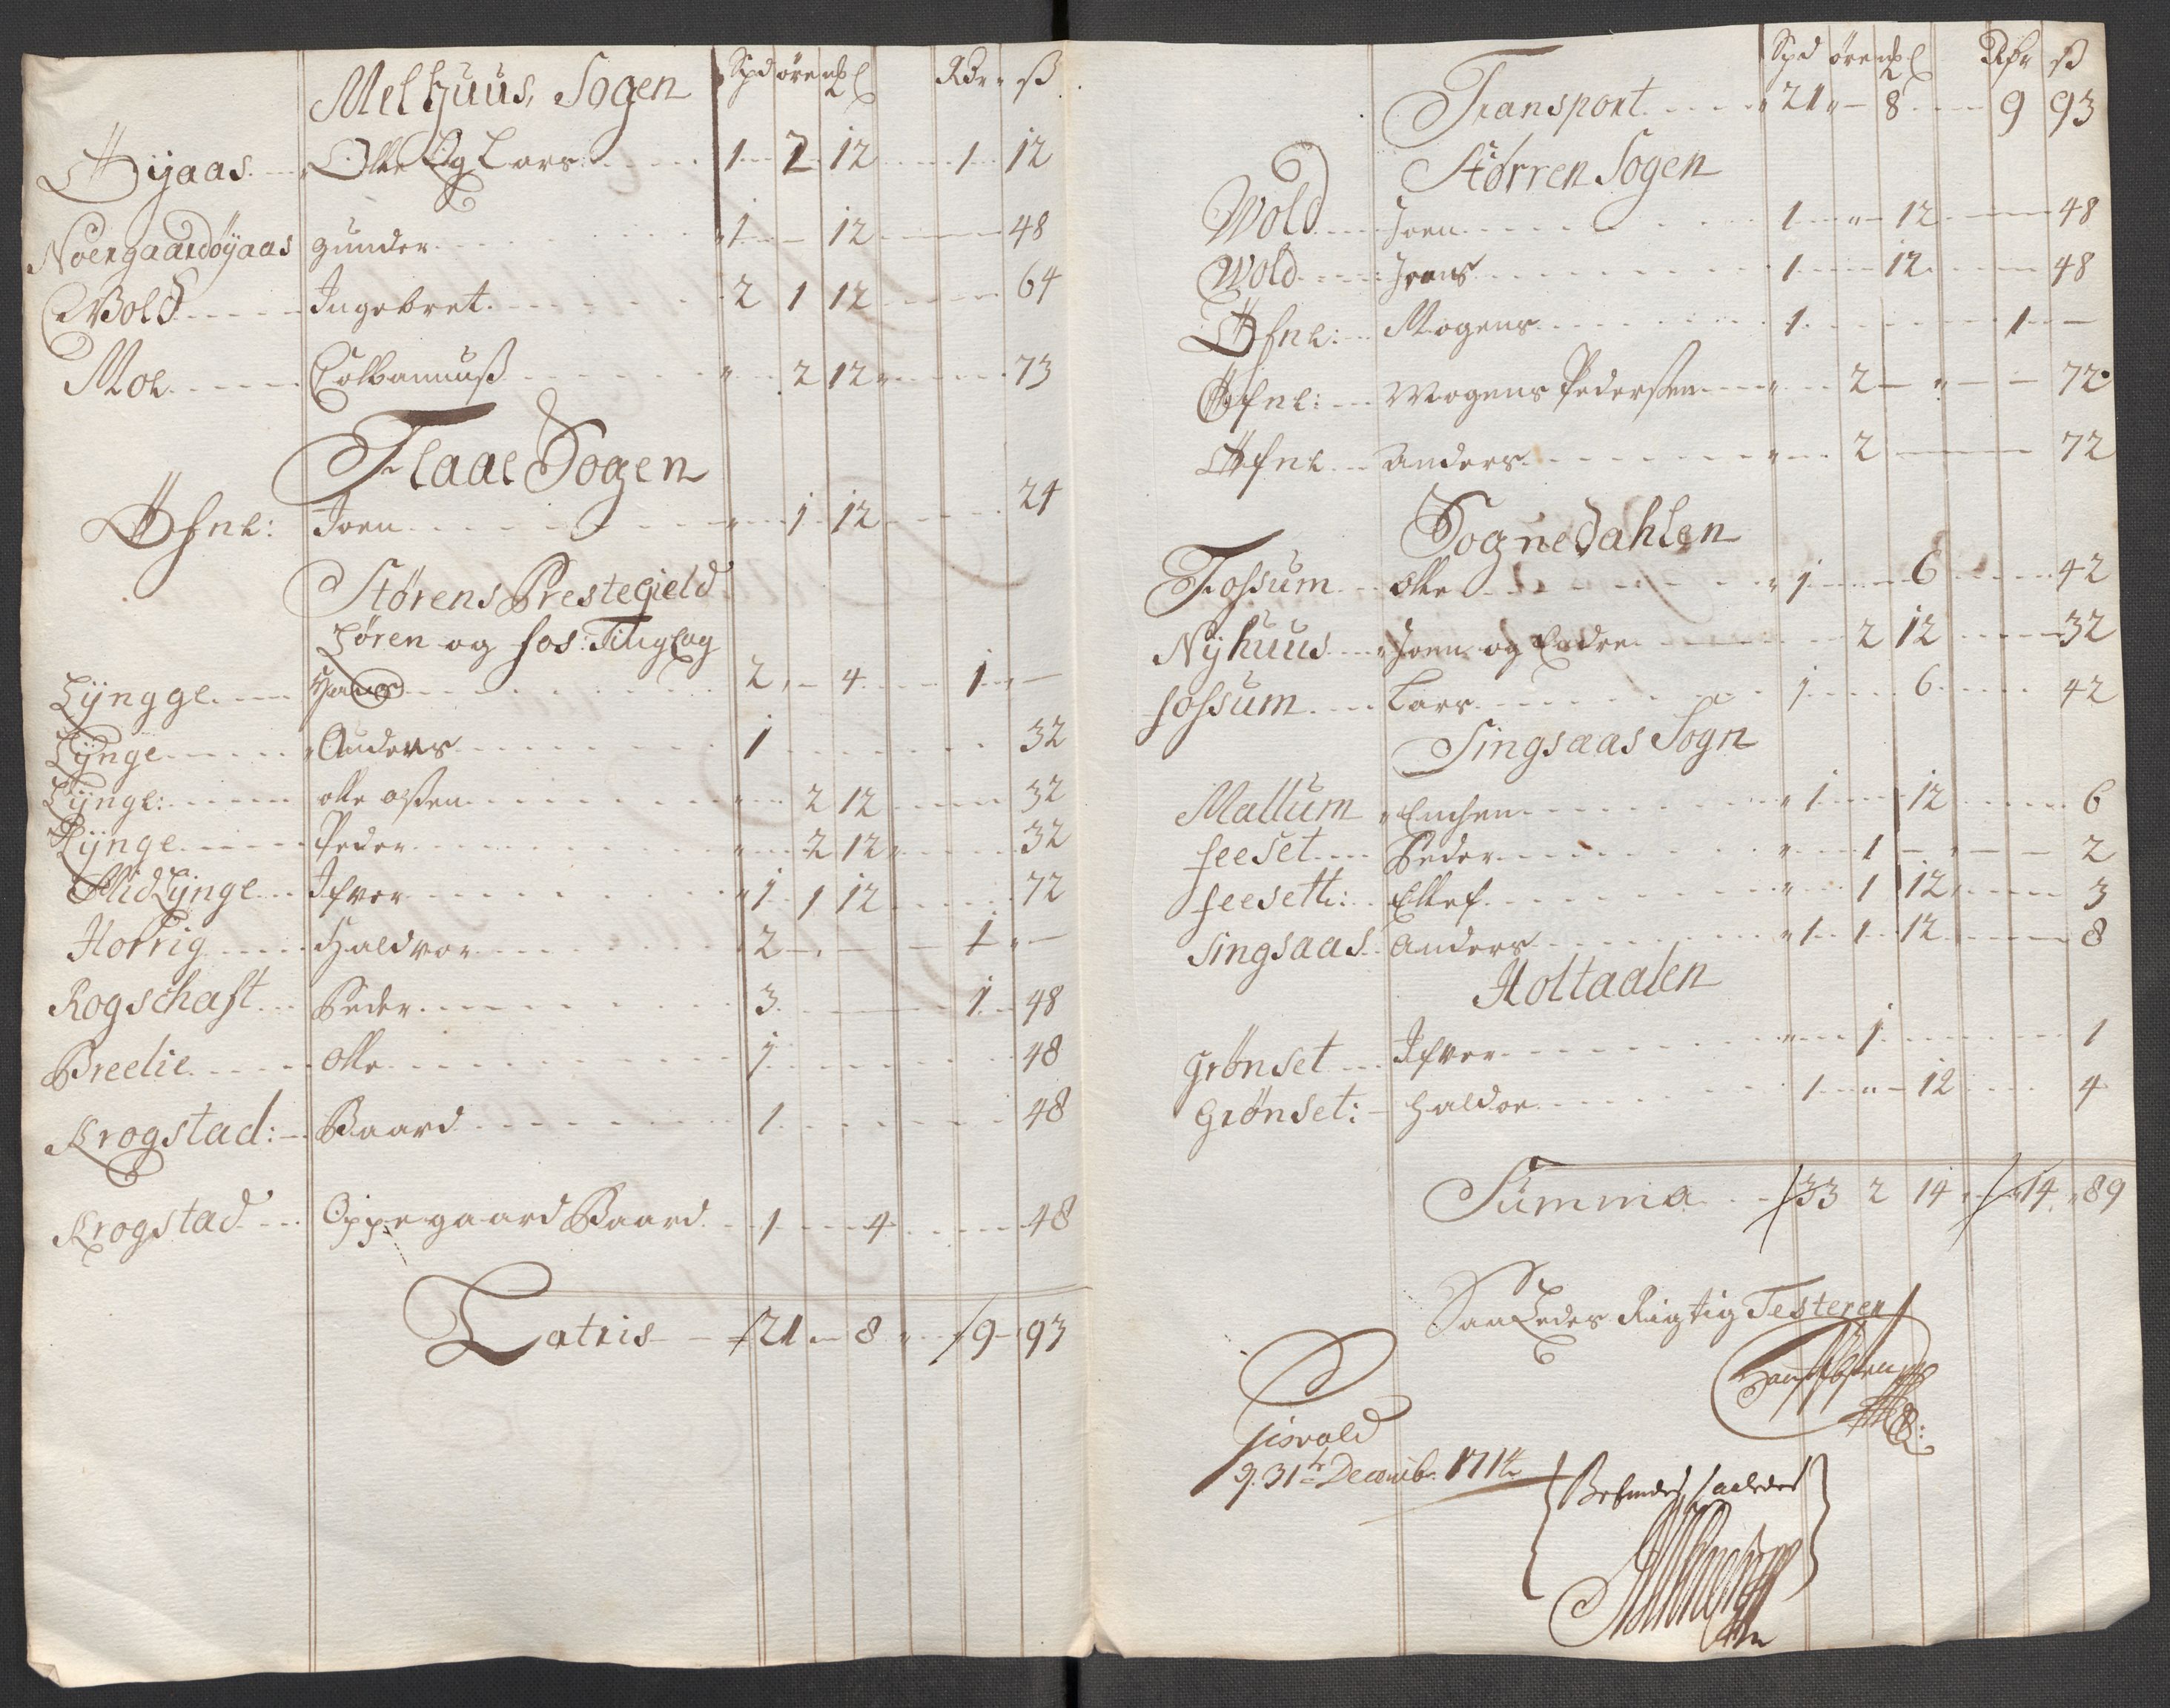 Melhuus, Sogen Spd øre mƺ Rdr ß
Øÿaas Olle Og Lars 1 2 12 1 12
Noergaardøÿaas gunder 1 — 12 48
Wold Ingebret 2 1 12 64
Moe Colbannuß 2 12 73
Flaae Sogen
Øfne: Joen 1 12 24
Størens Prestegield
Søren og hos: Tinglag
Lÿngge Hans 2 — 4 1 —
Lÿnge Anders 1 32
Lÿnge: olle olßen 2 12 32
Lÿnge Peder 2 12 32
MidLÿnge Ifver 1 1 12 72
Horrig Haldvor 2 — — 1 —
Rogschaft Peder 3 1 48
Breelie Olle 1 48
Krogstad: Baard 1 48
Krogstad Oppegaard Baard 1 4 48
Latris 21 — 8 9 93
Spd øre Rdr ß
Transport 21 — 8 9 93
Størren Sogen
Wold Joen 1 „ 12 48
Wold Jens 1 12 48
Øfne: Mogens 1 1 —
Øfne: Mogens Pederßen 2 — „ — 72
Øfne Anders 2 72
Sognedahlen
Fossum Olle 1 6 42
Nÿhuus Joen og Endre 2 12 32
fossum Lars 1 6 42
Singsaas Sogn
Mallum 1 12 6
feeset Peder 1 — 2
feesett: Ellef 1 12 3
Singsaas Anders 1 1 12 8
Holtaalen
Grønset Ifver 1 1
Grønset: Haldor 1 „ 12 4
Summa 33 2 14 14 89
Saa Ledes Rigtig Testerer
d. 31te Decemb: 1714
Befindes saaledes